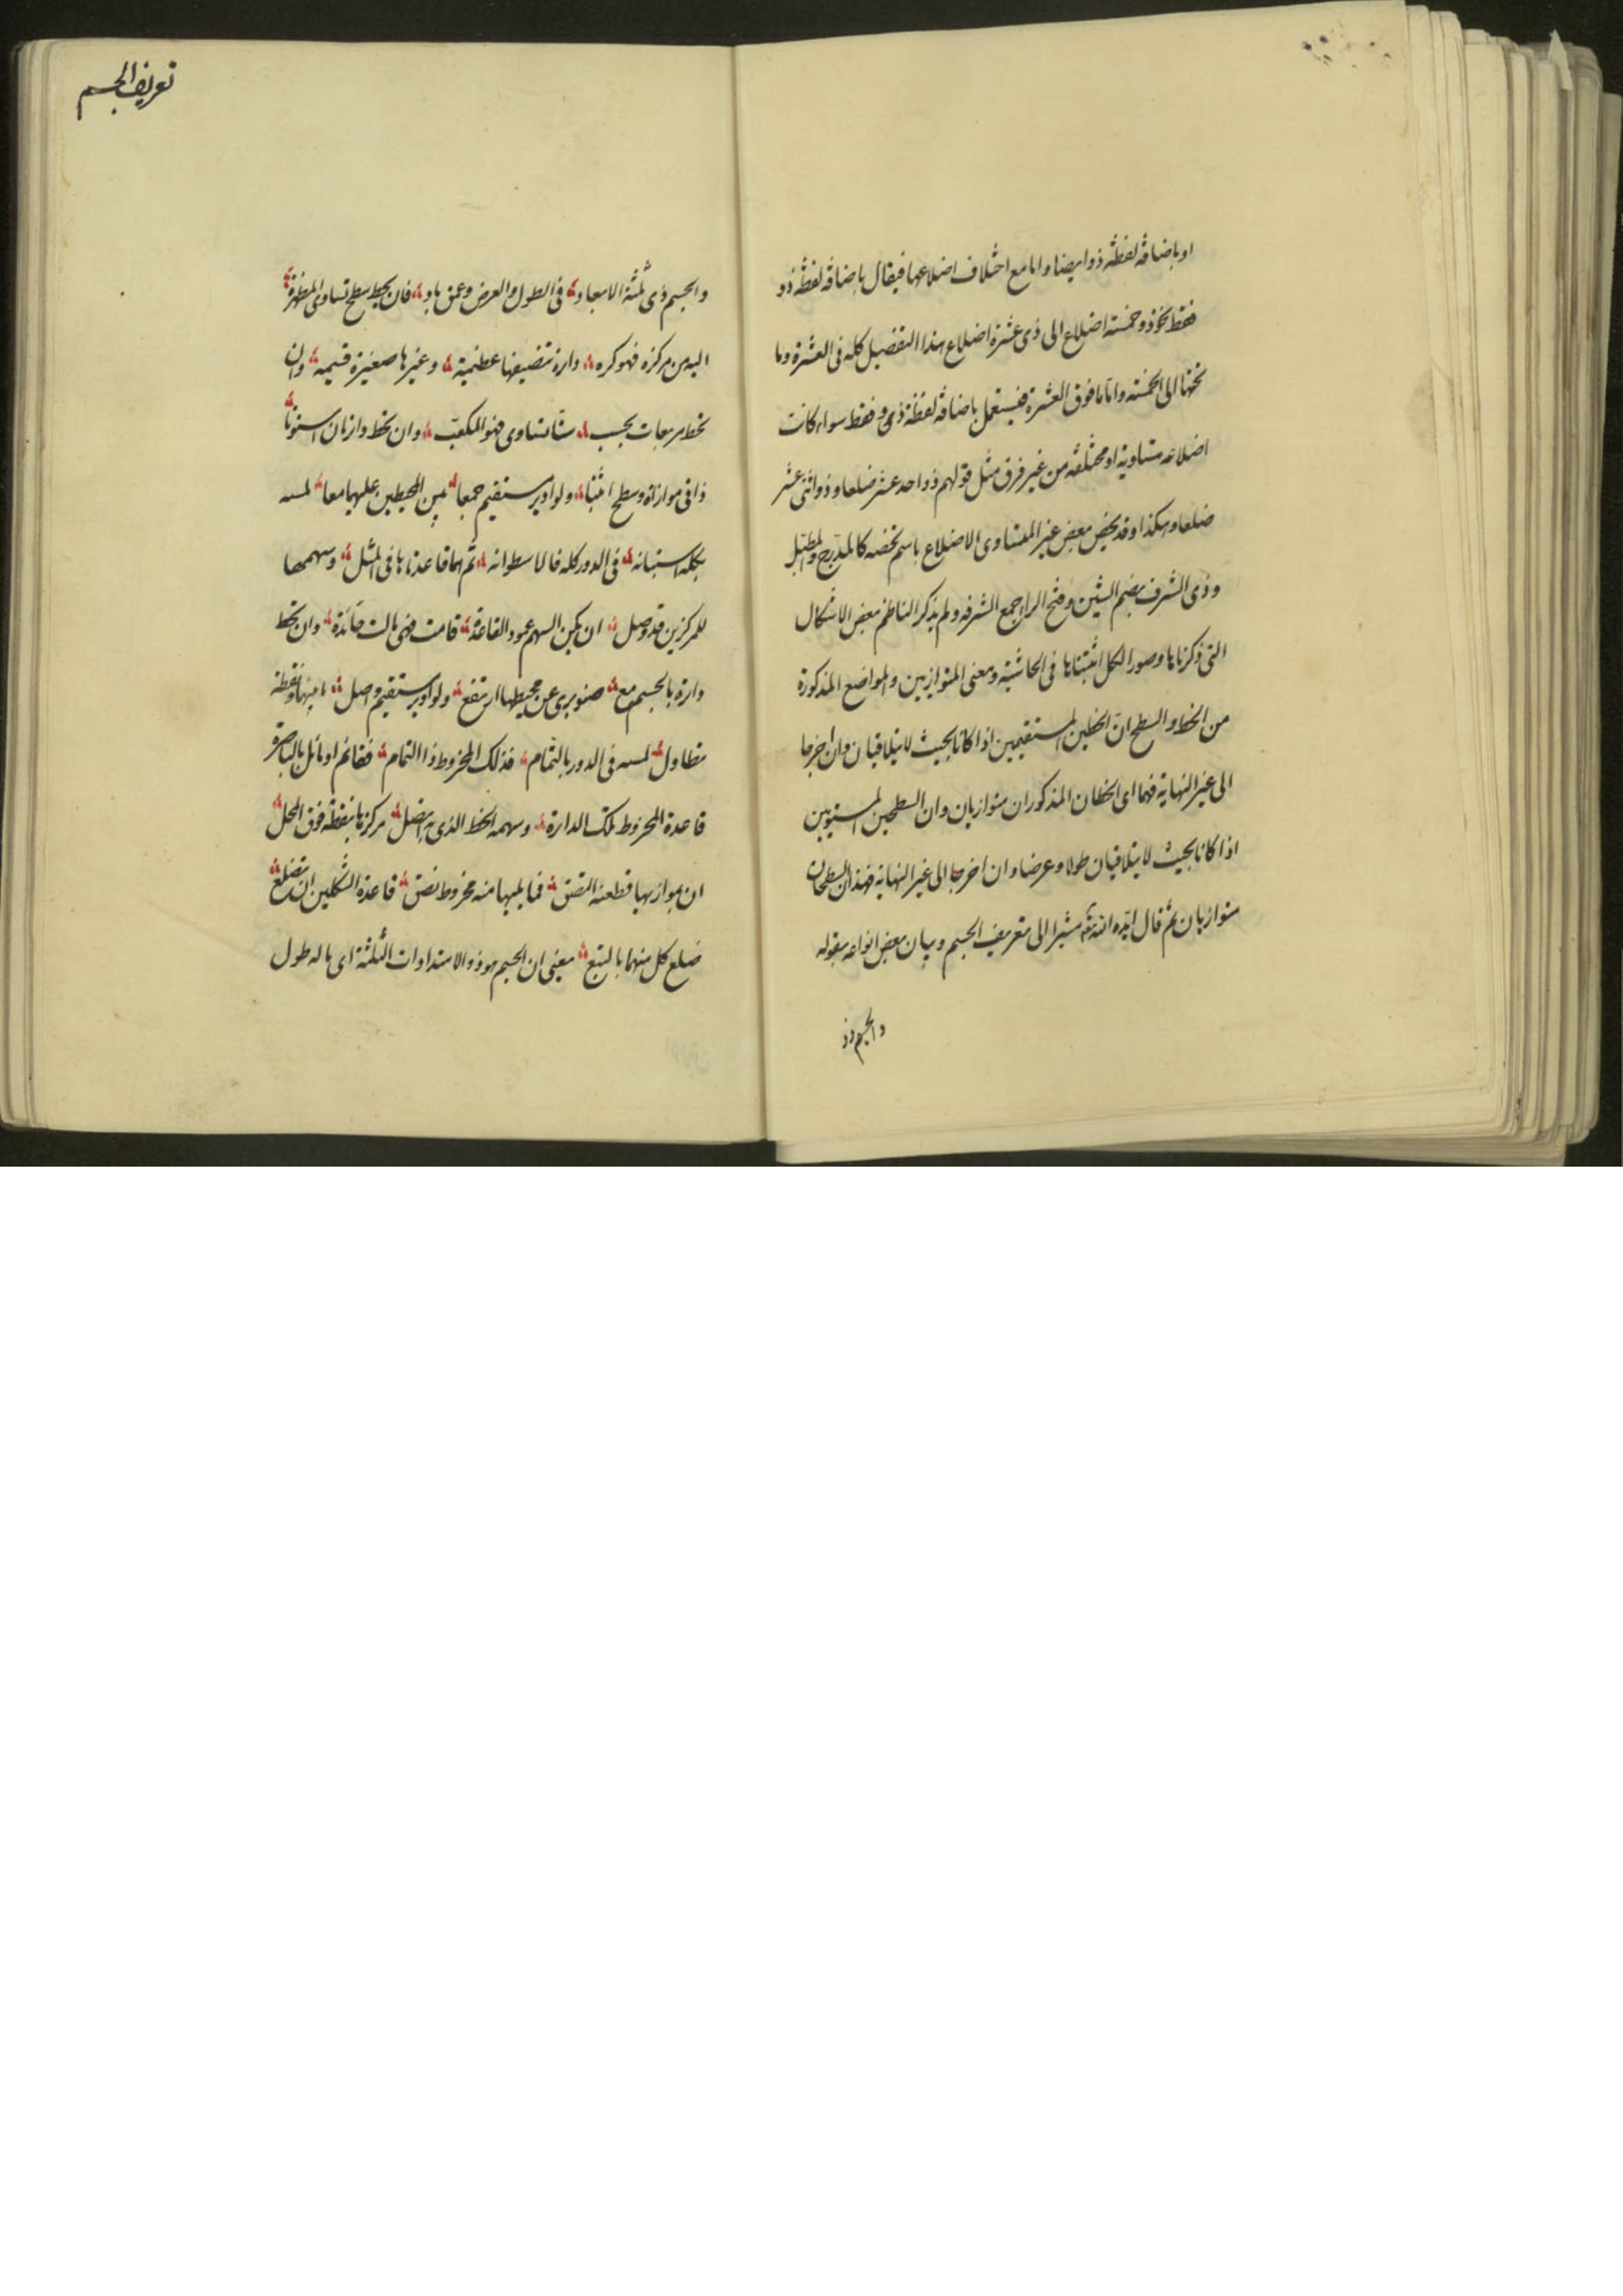 او باضافة لفظة ذو ايضا واما مع اختلاف اضلاعها فيقال باضافة لفظة ذو
فقط نحو ذو خمسة اضلاع الى ذى عشرة اضلاع هذا التفصيل كله فى العشرة وما
تحتها الى الخمسة واما ما فوق العشرة فيستعمل باضافة لفظة ذى فقط سواء كانت
اضلاعه متساوية او مختلفة من غير فرق مثل قولهم ذو احد عشر ضلعا وذو اثنى عشر
ضلعا وهكذا وقد يخص بعض غير المتساوى الاضلاع باسم يخصه كالمدرج والمطبل
وذى الشرف بضم الشين وفتح الراء جمع الشرفه ولم يذكر الناظم بعض الاشكال
التى ذكرناها وصور الكل اثبتناها فى الحاشية ومعنى المتوازيين والمواضع المذكورة
من الخط والسطح ان الخطين المستقيمين اذا كانا بحيث لا يتلاقيان وان اخرجا
الى غير النهاية فهما اى الخطان المذكوران متوازيان وان السطحين المستويين
اذا كانا بحيث لا يتلاقيان طولا وعرضا وان اخرجا الى غير النهاية فهذان السطحان
متوازيان ثم قال ايده الله مشيرا الى تعريف الجسم وبيان بعض انواعه بقوله
والجسم ذو
تعريف الجسم
والجسم ذى ثلثة الابعاد فى الطول والعرض وعمق باد فان يحيط سطح تساوى المظهرة
اليه من مركزه فهو كره دارة تنصيفها عظيمة وغيرها صغيرة قسيمه وان
تحط مربعات بحسب ستا تساوى فهو المكعب وان تحط دارتان استوتا
ذا فى موازاة وسطح اثبتا ولو ادير مستقيم جمعا بين المحيطين عليهما معا لمسه
بكله استبانه فى الدور كله فالاسطوانه ثم هما قاعدتاها فى المثل وسهمها
للمركزين قد وصل ان يكن السهم عمود القاعدة قامت فهى مالت حائدة وان تحط
دارة بالجسم مع صنوبرى عن محيطها ارتفع ولو ادير مستقيم وصل ما بينها ونقطة
تطاول لمسه فى الدور بالتمام فذلك المخروط ذا التمام فقائم او مائل بالباصرة
قاعدة المخروط تلك الدارة وسهمه الخط الذى به يتصل مركزها بنقطة فوق المحل
ان يوازيها قطعه التصق فما يليها منه مخروط نصق قاعدة الشكلين ان تضلع
ضلع كل منهما بالتبع معنى ان الجسم هو ذو الامتدادات الثلثة اى ما له طول